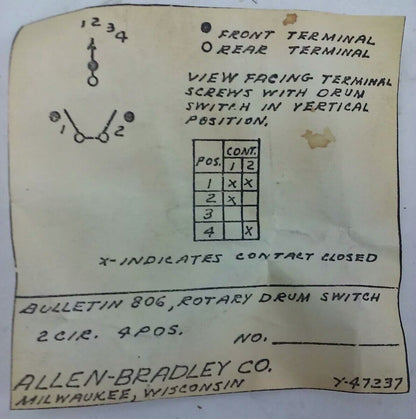 1 2 3 4
● FRONT TERMINAL
○ REAR TERMINAL
VIEW FACING TERMINAL
SCREWS WITH DRUM
SWITCH IN VERTICAL
POSITION.
1 2
POS. CONT.
1 2
1 X X
2 X
3
4 X
X-INDICATES CONTACT CLOSED
BULLETIN 806, ROTARY DRUM SWITCH
2 CIR. 4 POS. NO.
ALLEN-BRADLEY CO.
MILWAUKEE, WISCONSIN Y-47237